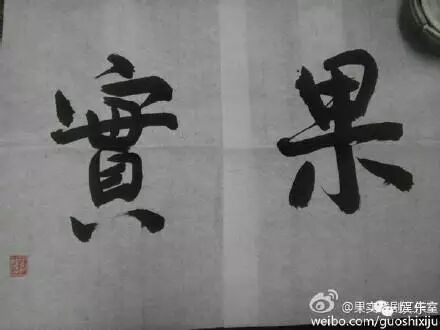 果實
@果实戏剧工作室
weibo.com/guoshixiju